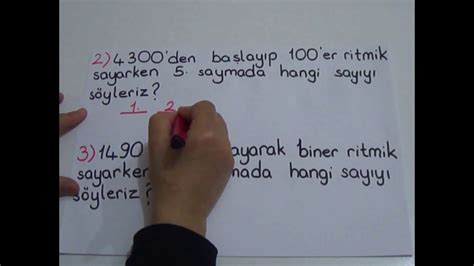 2) 4300'den başlayıp 100'er ritmik
sayarken 5. saymada hangi sayıyı
söyleriz?
1. 2
3) 1490 ayarak biner ritmik
sayarken mada hangi sayıyı
söyleriz?